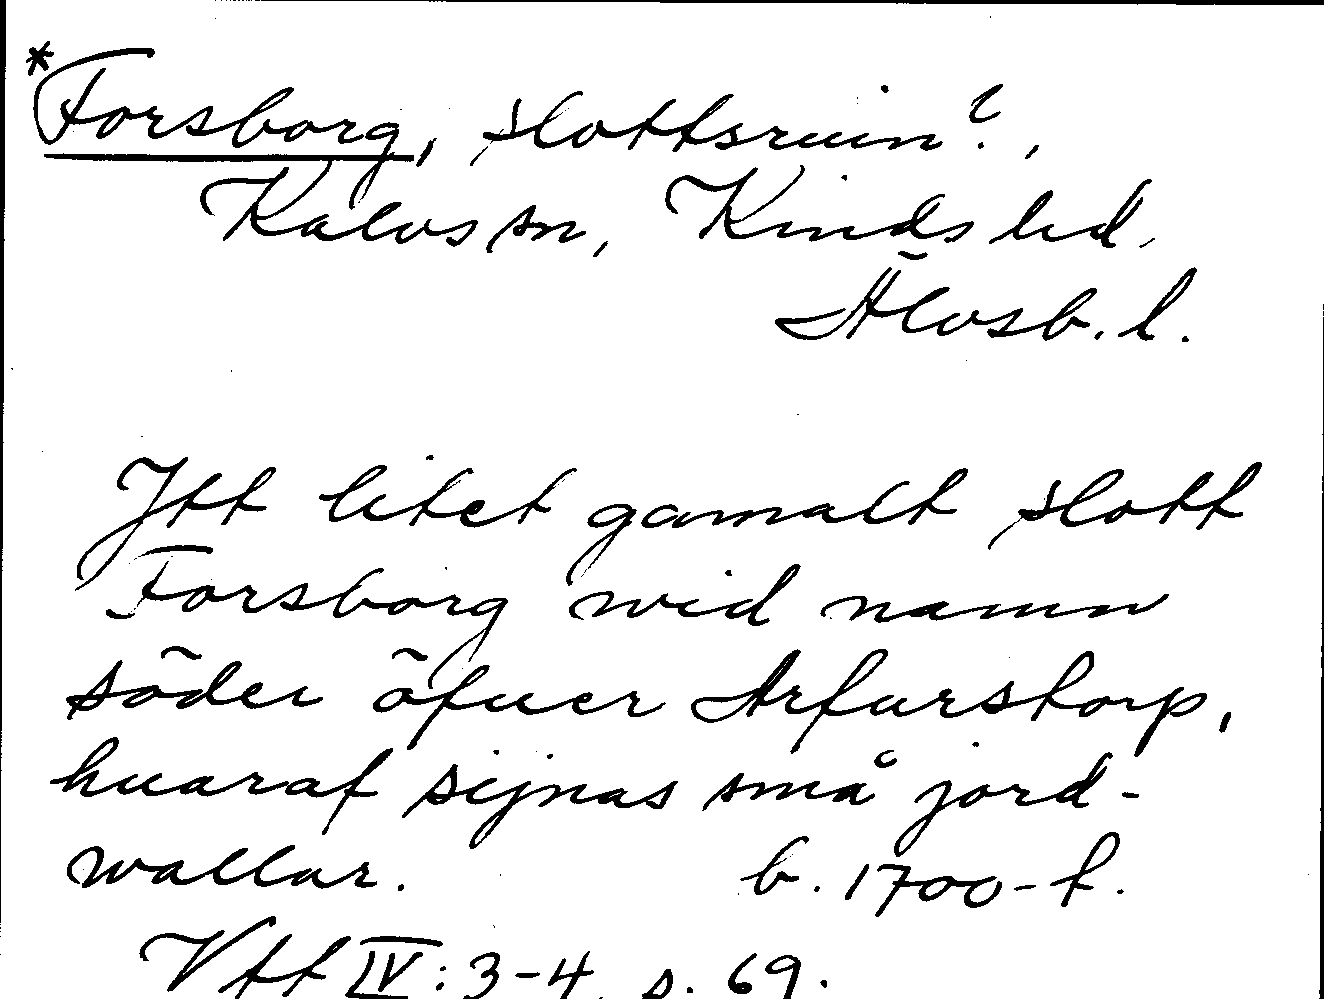 *Forsborg, slottsruin?,
Kalvs sn, Kinds hd,
Älvsb. l.
Itt litet gamalt slott
Forsborg wid namn
söder öfuer Arfurstorp,
huaraf sijnas små jord-
wallar. b. 1700-t.
Vtt IV: 3-4, s. 69.